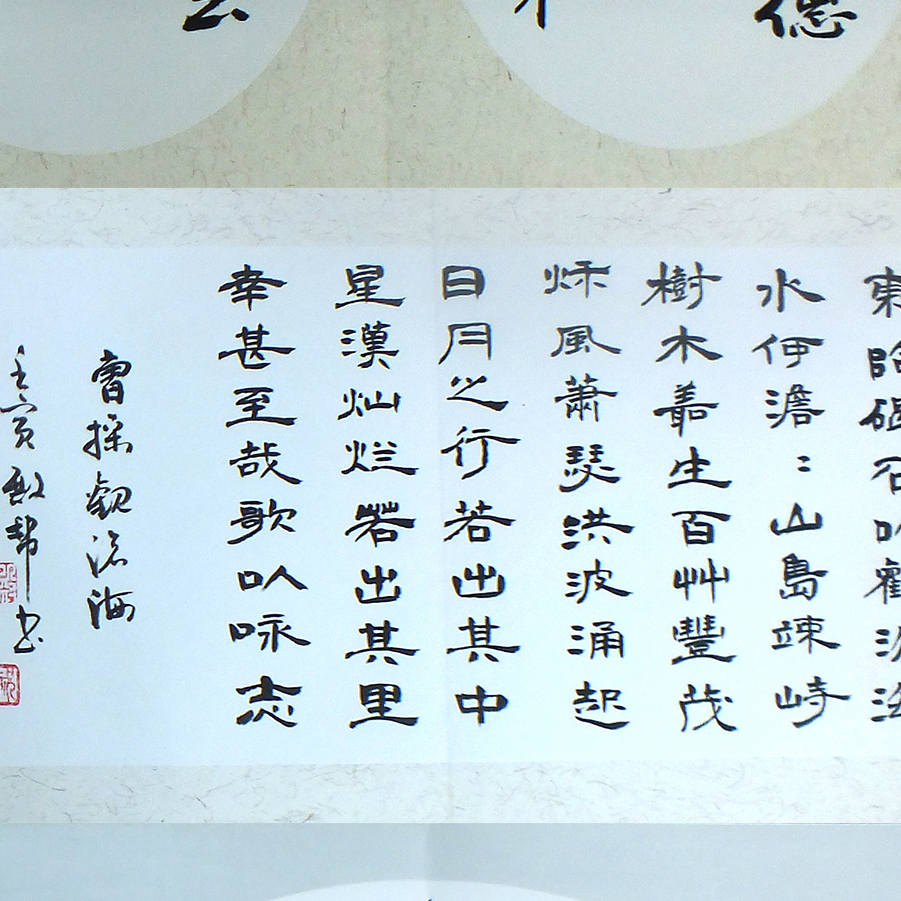 德
東臨碣石以觀滄海
水何澹〻山島竦峙
樹木叢生百艸豐茂
秋風蕭瑟洪波涌起
日月之行若出其中
星漢灿烂若出其里
幸甚至哉歌以咏志
曹操觀滄海
壬寅书